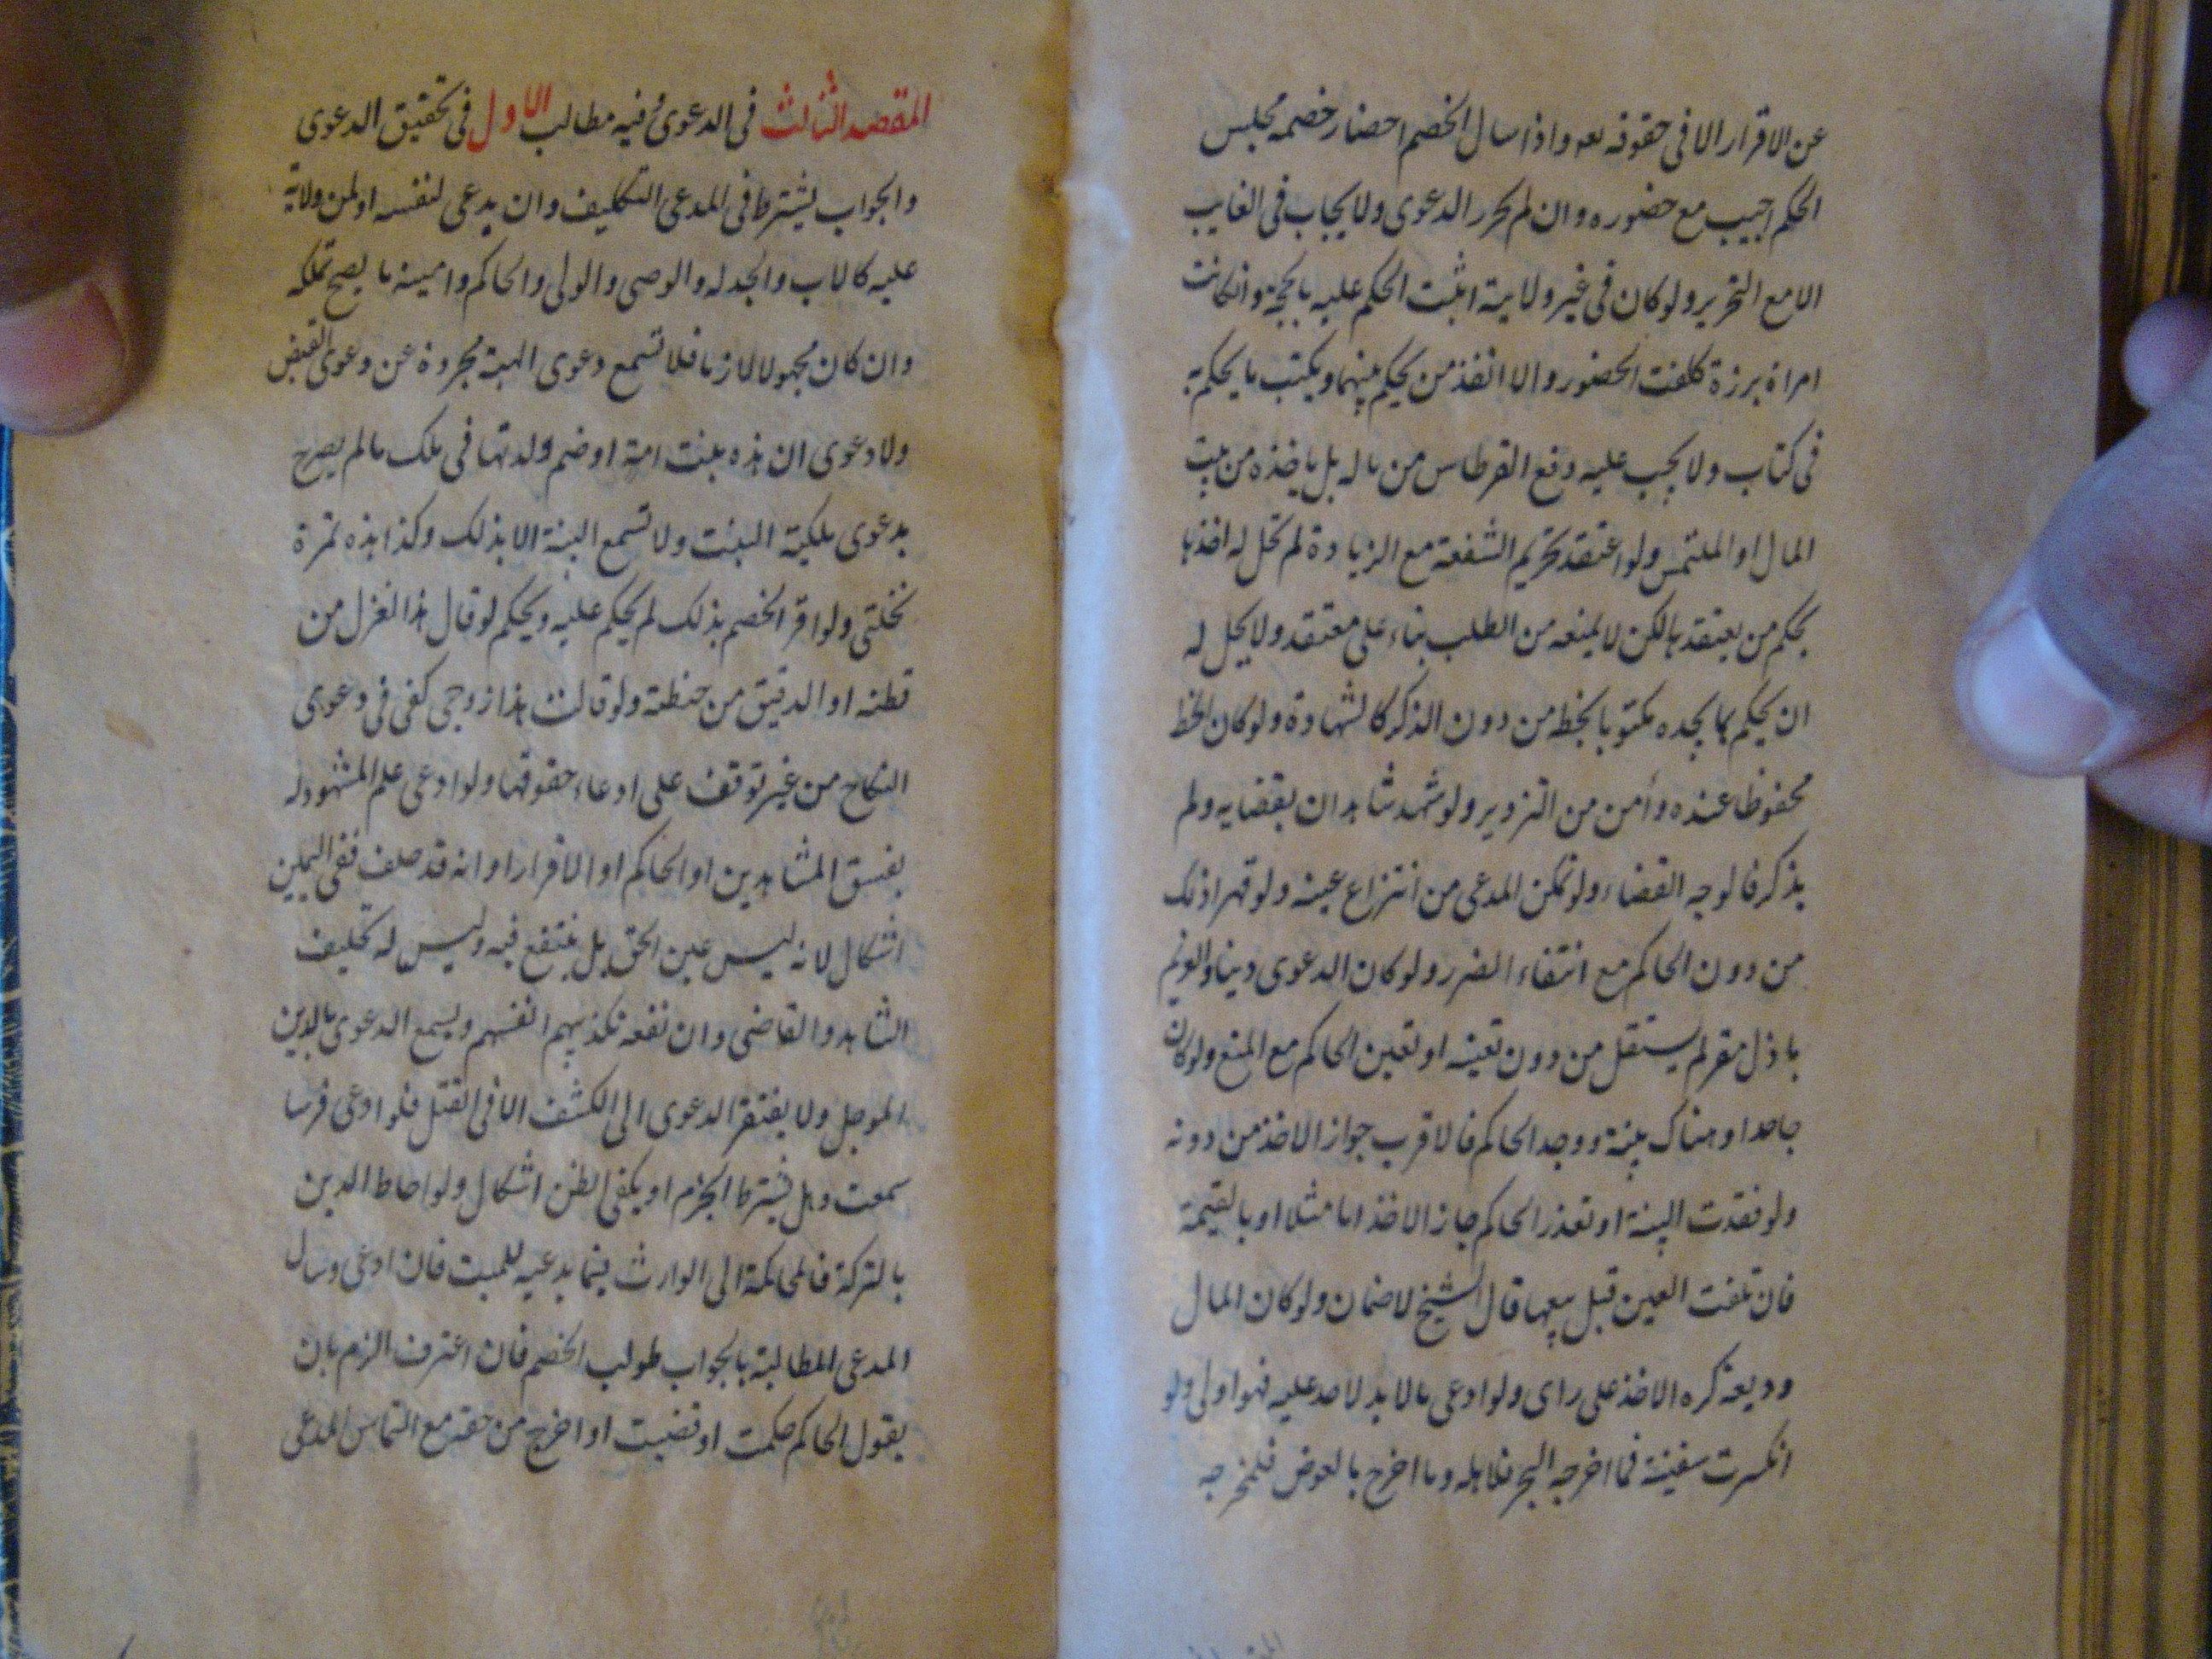 عن الاقرار الا فى حقوقه تعه واذا سال الخصم احضار خصمه مجلس
الحكم اجيب مع حضوره وان لم يحرر الدعوى ولا يجاب فى الغايب
الا مع التحرير ولو كان فى غير ولايته اثبت الحكم عليه بالحجة وان كانت
امراة برزة كلفت الحضور والا انفذ من يحكم بينهما ويكتب ما يحكم به
فى كتاب ولا يجب عليه دفع القرطاس من ماله بل ياخذه من بيت
المال او الملتمس ولو اعتقد تحريم الشفعة مع الزيادة لم تحل له اخذها
بحكم من يعتقدها لكن لا يمنعه من الطلب بناء على معتقده ولا يحل له
ان يحكم بما يجده مكتوبا بخطه من دون الذكر كالشهادة ولو كان الخط
محفوظا عنده وأمن من التزوير ولو شهد شاهدان بقضايه ولم
يذكر فالوجه القضاء ولو تمكن المدعى من انتزاع عينه ولو قهرا فله ذلك
من دون الحاكم مع انتفاء الضرر ولو كان الدعوى دينا والغريم
باذل مقر لم يستقل من دون تعينه او تعين الحاكم مع المنع ولو كان
جاحدا وهناك بينة ووجد الحاكم فالاقرب جواز الاخذ من دونه
ولو فقدت البينة او تعذر الحاكم جاز الاخذ اما مثلا او بالقيمة
فان تلفت العين قبل بيعها قال الشيخ لا ضمان ولو كان المال
وديعة كره الاخذ على راى ولو ادعى مالا يد لاحد عليه فهو اولى ولو
انكسرت سفينة فما اخرجه البحر فلاهله وما اخرج بالغوص فلمخرجه
المقصد الثالث فى الدعوى وفيه مطالب الاول فى تحقيق الدعوى
والجواب يشترط فى المدعى التكليف وان يدعى لنفسه او لمن ولاية
عليه كالاب والجد له والوصى والولى والحاكم وامينه ما يصح تملكه
وان كان مجهولا لازما فلا تسمع دعوى الهبة مجردة عن دعوى القبض
ولا دعوى ان هذه بنت امته او ضم ولدتها فى ملك ما لم يصرح
بدعوى ملكية البنت ولا تسمع البينة الا بذلك وكذا هذه تمرة
نخلتى ولو اقر الخصم بذلك لم يحكم عليه ويحكم لو قال هذا الغزل من
قطنه او الدقيق من حنطته ولو قالت هذا زوجى كفى فى دعوى
النكاح من غير توقف على ادعاء حقوقها ولو ادعى علم المشهود له
بفسق الشاهدين او الحاكم او الاقرار او انه قد حلف ففى اليمين
اشكال لانه ليس عين الحق بل ينتفع فيه وليس له تحليف
الشاهد والقاضى وان نفعه تكذيبهم انفسهم ويسمع الدعوى بالدين
الموجل ولا يفتقر الدعوى الى الكشف الا فى القتل فلو ادعى فرسا
سمعت وهل يشترط الجزم او يكفى الظن اشكال ولو احاط الدين
بالتركة فالمحاكمة الى الوارث فيما يدعيه للميت فان ادعى وسال
المدعى المطالبة بالجواب طولب الخصم فان اعترف الزم بان
يقول الحاكم حكمت او قضيت او اخرج من حقه مع التماس المدعى